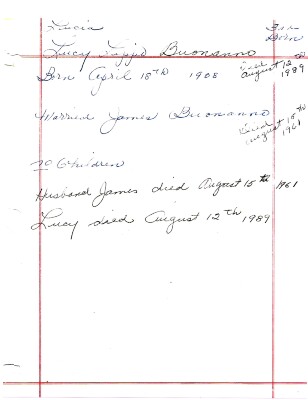 Lucia
Born
Lucy Buonanno
Born April 18th 1908
Died
August 12
1989
Married James Buonanno
Died 15th
August
1961
no Children
Husband James died August 15th 1961
Lucy died August 12th 1989